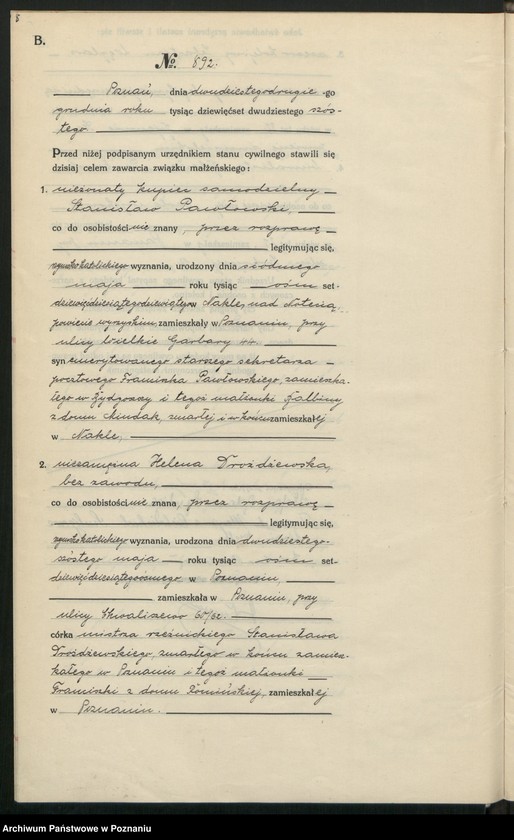 8
B.
№. 892.
Poznań, dnia dwudziestegodrugie-go
grudnia roku tysiąc dziewięćset dwudziestego szós-
tego
Przed niżej podpisanym urzędnikiem stanu cywilnego stawili się
dzisiaj celem zawarcia związku małżeńskiego:
1. nieżonaty kupiec samodzielny
Stanisław Pawłowski,
co do osobistości nie znany, przez rozprawę
legitymując się,
rzymskokatolickiego wyznania, urodzony dnia siódmego
maja roku tysiąc ośm set-
dziewięćdziesiątegodziewiątego w Nakle, nad Notecią,
powiecie wyrzyskim, zamieszkały w Poznaniu, przy
ulicy Wielkie Garbary 44.
syn emerytowanego starszego sekretarza
pocztowego Franciszka Pawłowskiego, zamieszka-
łego w Bydgoszczy i tegoż małżonki Balbiny
z domu zmarłej i w końcu zamieszkałej
w Nakle,
2. niezamężna Helena Drożdżewska,
bez zawodu,
co do osobistości nie znana, przez rozprawę
legitymując się,
rzymskokatolickiego wyznania, urodzona dnia dwudziestego-
szóstego maja roku tysiąc ośm set-
dziewięćdziesiątegoósmego w Poznaniu,
zamieszkała w Poznaniu, przy
ulicy Chwaliszewo
córka mistrza rzeźnickiego Stanisława
Drożdżewskiego, zmarłego w końcu zamiesz-
kałego w Poznaniu i tegoż małżonki
Franciszki z domu zamieszkałej
w Poznaniu.
Archiwum Państwowe w Poznaniu